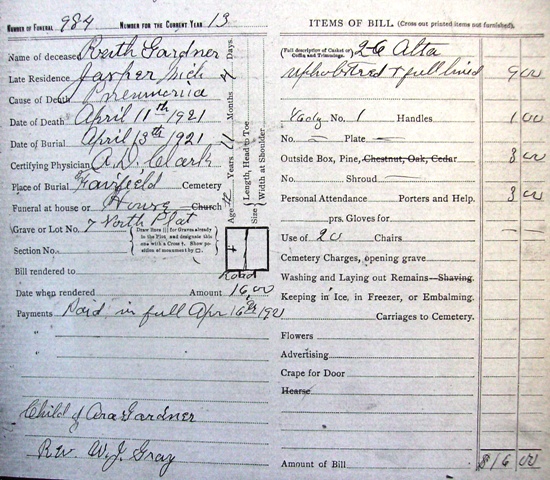 NUMBER OF FUNERAL 984 NUMBER FOR THE CURRENT YEAR 13
Name of deceased Ruth Gardner
Late Residence Jasper Mich
Cause of Death Pneumonia
Date of Death April 11th 1921
Date of Burial April 13th 1921
Certifying Physician A. D. Clark
Place of Burial Fairfield Cemetery
Funeral at house or House Church
Grave or Lot No. 7 North Plat
Draw lines for Graves already in the Plot, and designate this one with a Cross †. Show position of monument by □.
Section No.
Bill rendered to
Road
Date when rendered Amount 16.00
Payments Paid in full Apr 16th 1921
"
"
Child of Ora Gardner
Rev. W. J. Gray
Age Years 11 Months Days
Size { Length, Head to Toe
Width at Shoulder
ITEMS OF BILL (Cross out printed items out furnished).
(Full description of Casket or Coffin and Trimmings. 26 Alta
upholstered & full lined 9 00
Body No. 1 Handles 1 00
No. Plate
Outside Box, Pine, Chestnut, Oak, Cedar 3 00
No. Shroud
Personal Attendance Porters and Help. 3 00
prs. Gloves for
Use of 20 Chairs
Cemetery Charges, opening grave
Washing and Laying out Remains Shaving.
Keeping in Ice, in Freezer, or Embalming.
Carriages to Cemetery.
Flowers
Advertising
Crape for Door
Hearse
Amount of Bill $16 00